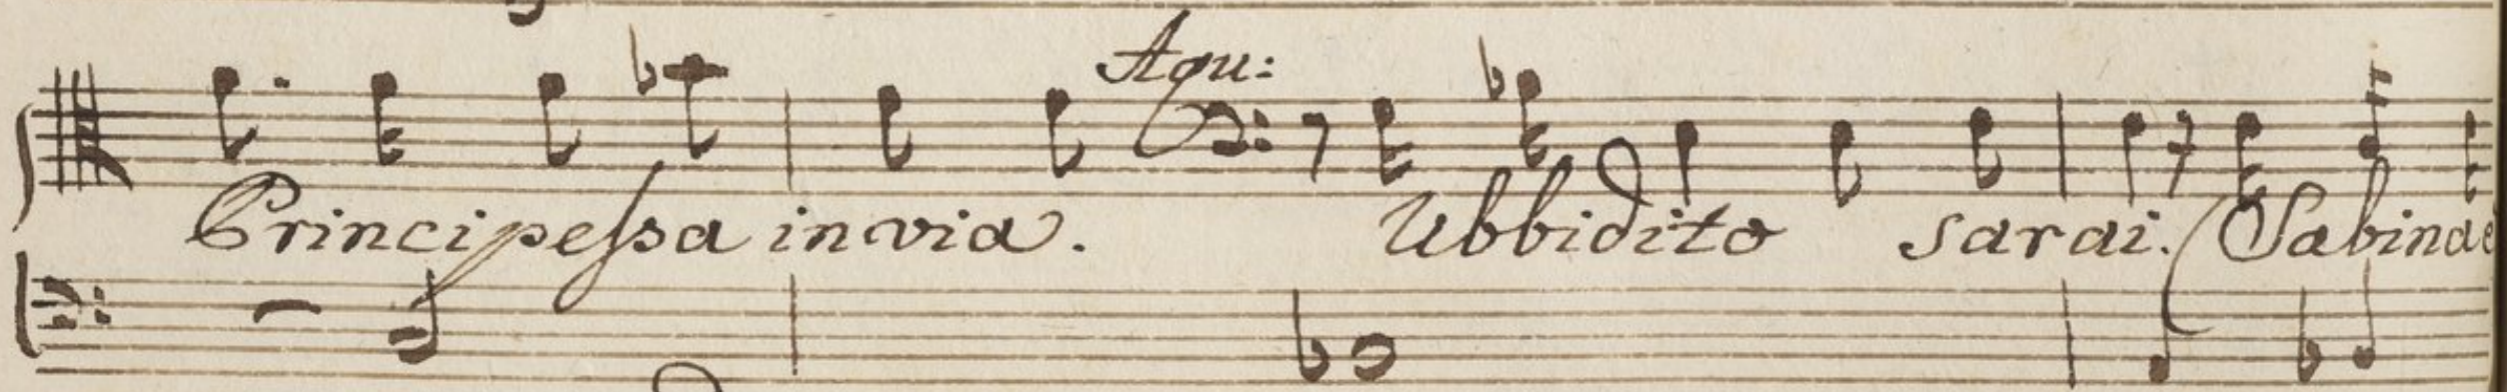 Aqu:
Principessa in via. Ubbidito sarai. (Sabina e